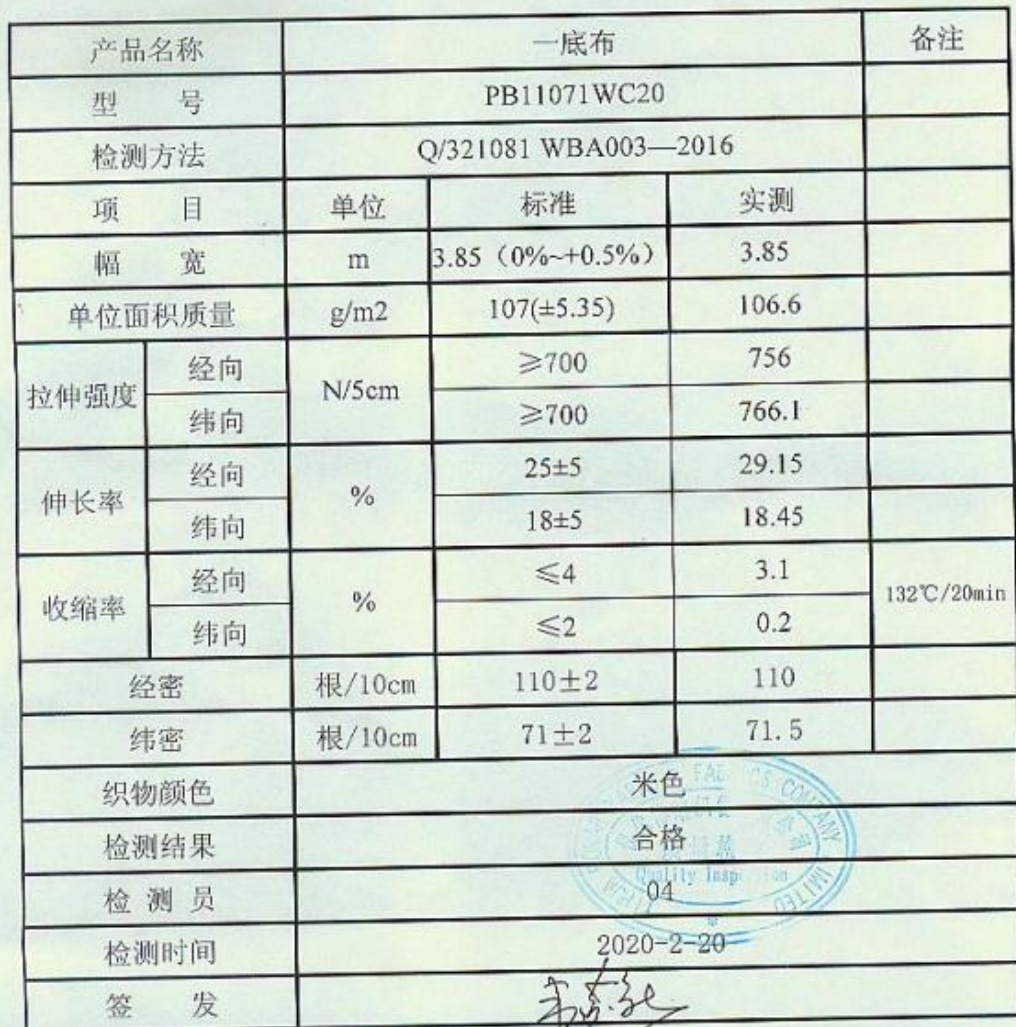 产品名称 一底布 备注
型 号 PB11071WC20
检测方法 Q/321081 WBA003—2016
项 目 单位 标准 实测
幅 宽 m 3.85（0%~+0.5%） 3.85
单位面积质量 g/m2 107(±5.35) 106.6
拉伸强度 经向 N/5cm ≥700 756
纬向 ≥700 766.1
伸长率 经向 % 25±5 29.15
纬向 18±5 18.45
收缩率 经向 % ≤4 3.1 132℃/20min
纬向 ≤2 0.2
经密 根/10cm 110±2 110
纬密 根/10cm 71±2 71.5
织物颜色 米色
检测结果 合格
检 测 员 04
检测时间 2020-2-20
签 发
COMPANY LIMITED
Quality